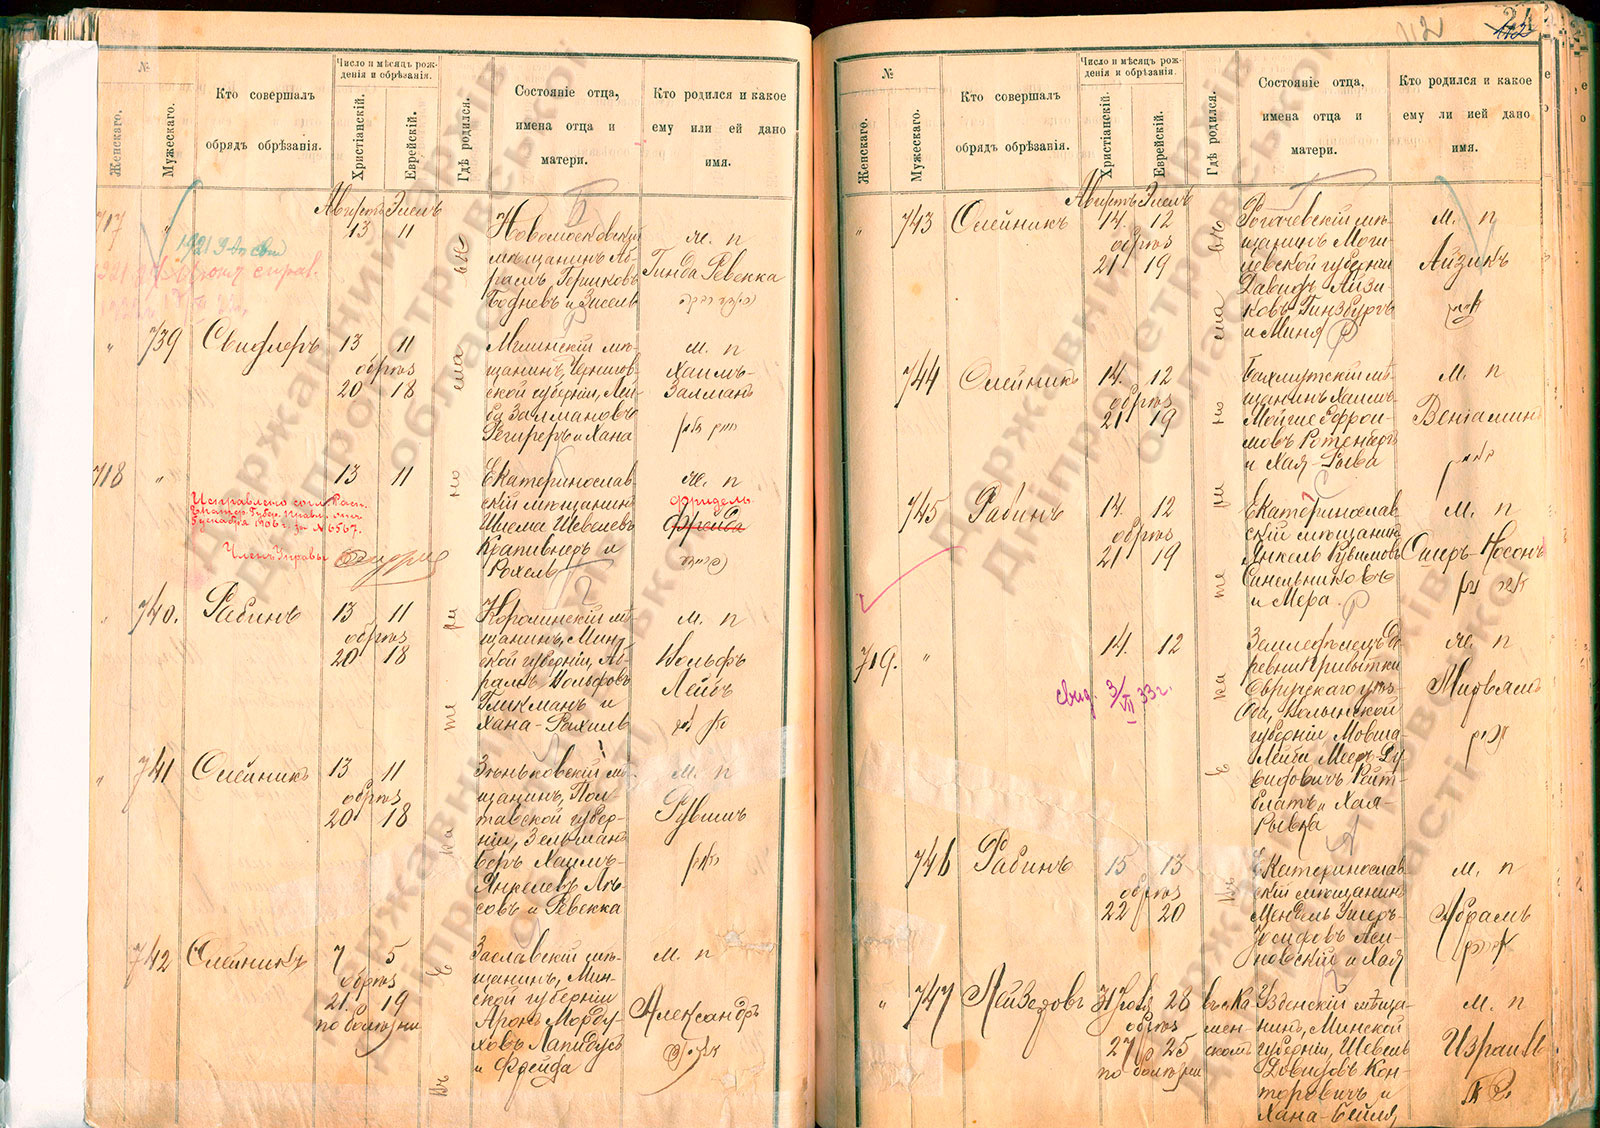 №
Женскаго.
Мужескаго.
Кто совершалъ
обрядъ обрѣзанія.
Число и мѣсяцъ рож-
денія и обрѣзанія.
Христіанскій.
Еврейскій.
Гдѣ родился.
Состояніе отца,
имена отца и
матери.
Кто родился и какое
ему или ей дано
имя.
717
Августъ Элелъ
13 11
Новомосковскій
мѣщанинъ Аб-
рамъ Гершковъ
Бодневъ и Зисель
ж. п
Гинда Ревекка
739
Свифлеръ
13 11
обрѣз
20 18
мѣ-
щанинъ, Чернигов-
ской губерніи, Лей-
ба Залмановъ
и Хана
м. п
Хаимъ-
Залманъ
718
13 11
Исправлено согл. Расп.
Екатер. Губер. Правл. отъ
5 декабря 1906 г. за № 6567.
Членъ Управы
Екатеринослав
скій мѣщанинъ
Шлема Шевелевъ
Крапивнеръ и
Рохель
ж. п
Фридель
Фрейда
740.
Рабинъ
13 11
обрѣз
20 18
мѣ-
щанинъ, Мин-
ской губерніи, Аб-
рамъ Вольфовъ
Гликманъ и
Хана-Рахиль
м. п
Вольфъ
Лейбъ
741
Олейникъ
13 11
обрѣз
20 18
Зѣньковскій мѣ-
щанинъ, Пол-
тавской губер-
ніи, Зельманъ
Беръ Хаимъ-
Янкелевъ
и Ревекка
м. п
Рувимъ
742
Олейникъ
7 5
обрѣз
21. 19
по болѣзни
Заславскій мѣ-
щанинъ, Мин-
ской губерніи
Аронъ Морду-
ховъ Лапидусъ
и Фрейда
м. п
Александръ
Въ Е ка те ри но сла вѣ
112
№
Женскаго.
Мужескаго.
Кто совершалъ
обрядъ обрѣзанія.
Число и мѣсяцъ рож-
денія и обрѣзанія.
Христіанскій.
Еврейскій.
Гдѣ родился.
Состояніе отца,
имена отца и
матери.
Кто родился и какое
ему ли ией дано
имя.
743
Олейникъ
Августъ Элелъ
14. 12
обрѣз
21 19
Рогачевскій мѣ-
щанинъ Моги-
левской губерніи
Давидъ Айзи-
ковъ Гинзбургъ
и Миня
м. п
Айзикъ
744
Олейникъ
14. 12
обрѣз
21 19
Бахмутскій мѣ-
щанинъ Хаимъ-
Мойше Ефрои-
мовъ Ротенбергъ
и Хая-Рыва
м. п
Веніаминъ
745
Рабинъ
14. 12
обрѣз
21 19
Екатеринослав
скій мѣщанинъ
Янкель Рувимовъ
Синельниковъ
и Мера.
м. п
Ошеръ-Носонъ
719.
14. 12
свид. 3/VII 33 г.
Земледѣлецъ де-
ревни Прибытки
Овручскаго уѣз-
да, Волынской
губерніи Мовша
Лейба Мееръ-Ру-
видовичъ Райт-
блатъ и Хая-
Рывка
ж. п
Мирьямъ
746
Рабинъ
15 13
обрѣз
22 20
Екатеринослав
скій мѣщанинъ
Мендель Ушеръ-
Іосифовъ Яси-
новскій и Хая
м. п
Абрамъ
747
Лейзеровъ
Іюля 28
обрѣз
27 25
по болѣзни
въ с. Ка
мен-
скомъ
Узденскій мѣща-
нинъ, Минской
губерніи, Шевель
Давидовъ Кон-
торовичъ и
Хана-Бейля,
м. п
Израиль
Въ Е ка те ри но сла вѣ
Державний архів
Дніпропетровської
області